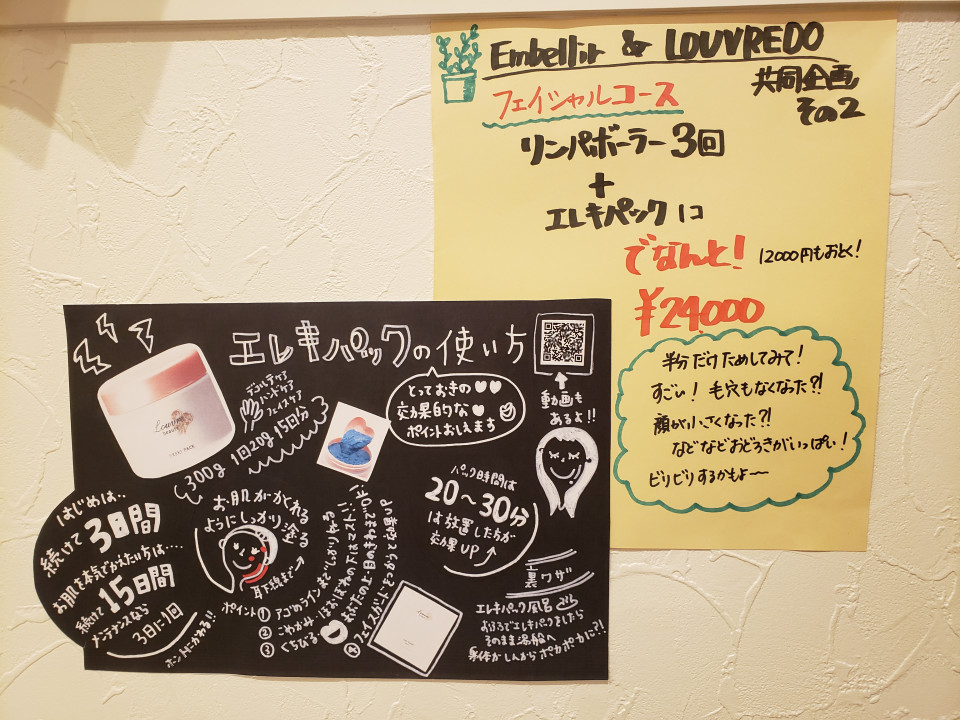 Embellir & LOUVREDO
共同企画
その2
フェイシャルコース
リンパボーラー3回
+
エレキパック1コ
でなんと!
12000円もおとく!
¥24,000
半分だけためしてみて!
すごい! 毛穴もなくなった?!
顔が小さくなった?!
などなどおどろきがいっぱい!
ビリビリするかもよ〜
エレキパックの使い方
動画も
あるよ!!
とっておきの
効果的な
ポイントおしえます
デコルテケア
ハンドケア
フェイスケア
300g 1回20g 15回分
はじめは‥
続けて3日間
お肌を本気でかえたい方は‥‥
続けて15日間
メンテナンスなら
3日に1回
ホントにかわる!!
お肌がかくれる
ようにしっかり塗る
耳下腺まで→
ポイント① アゴのラインまでしっかりぬる
② こめかみ ほおぼねの下はマスト!!
③ くちびる
パック時間は
20〜30分
は放置した方が
効果UP
裏ワザ
エレキパック風呂
おふろでエレキパックをしたら
そのまま湯船へ
身体がしんからポカポカに?!